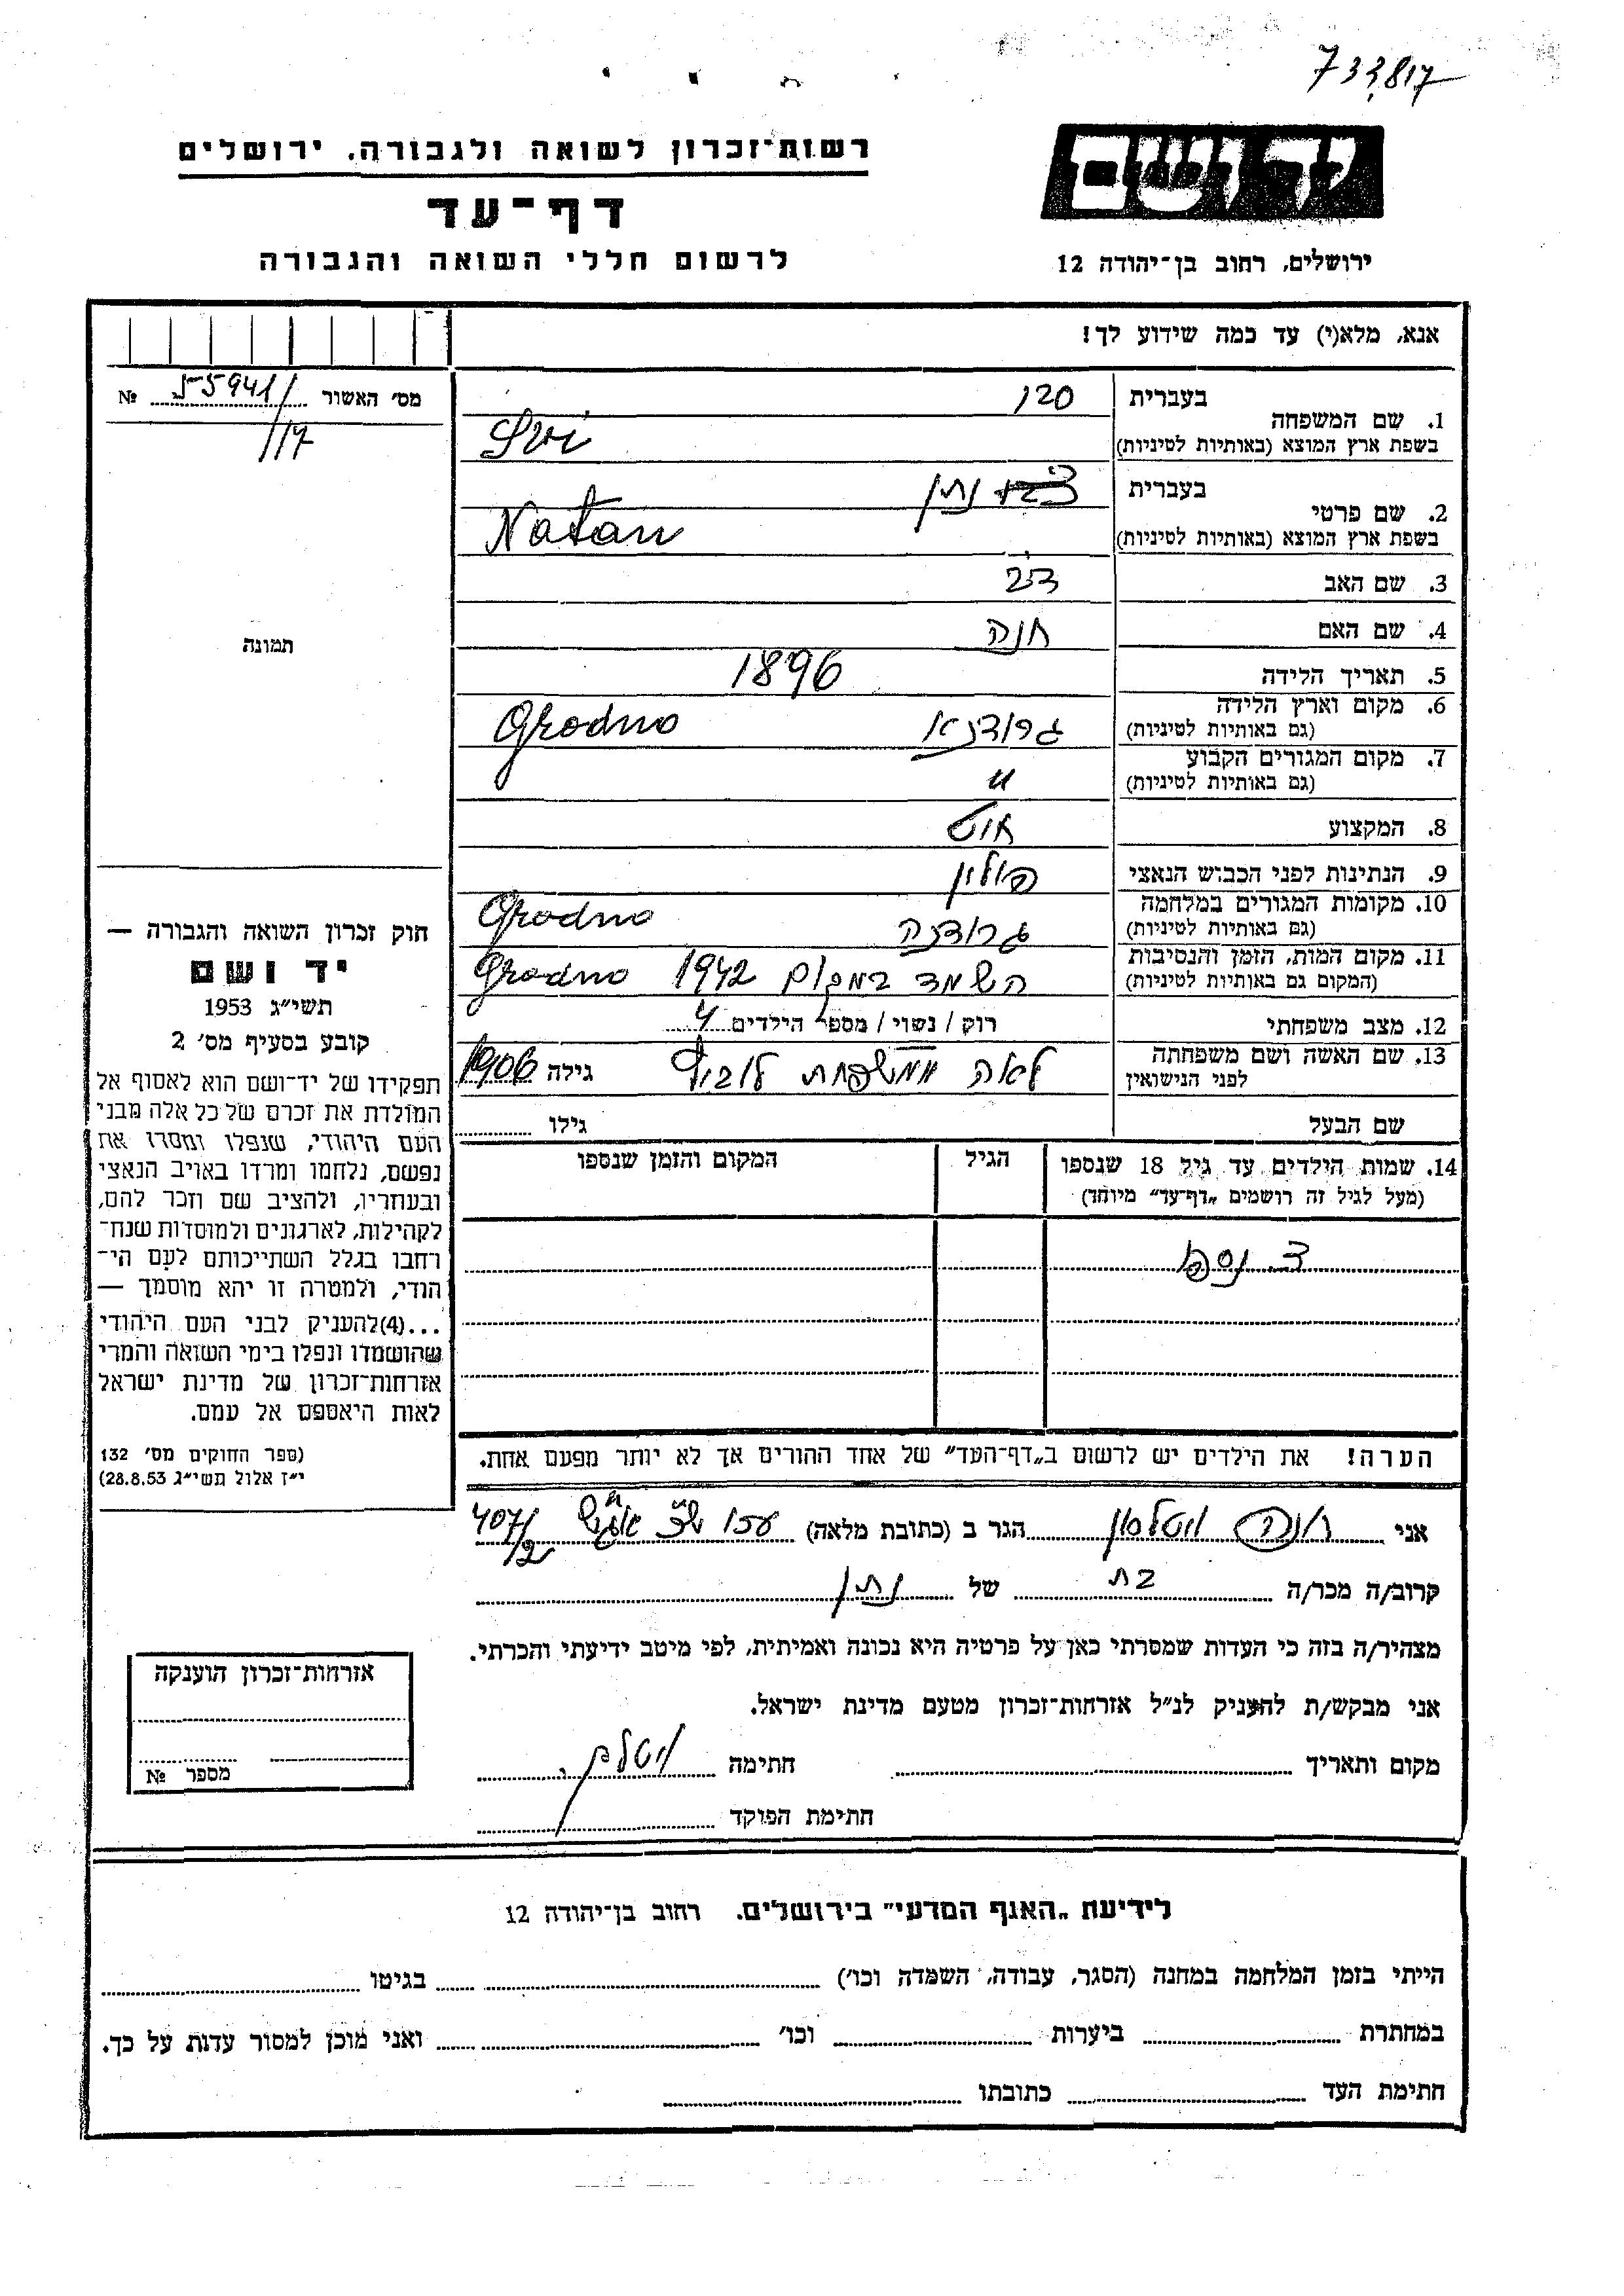 733817
יד ושם
ירושלים, רחוב בן־יהודה 12
רשות־זכרון לשואה ולגבורה, ירושלים
דף־עד
לרשום חללי השואה והגבורה
אנא, מלא(י) עד כמה שידוע לך!
מס׳ האשור 55941/ №
/17
1. שם המשפחה
בעברית
בשפת ארץ המוצא (באותיות לטיניות)
2. שם פרטי
בעברית נתן
בשפת ארץ המוצא (באותיות לטיניות) Natan
3. שם האב
4. שם האם חנה
5. תאריך הלידה 1896
6. מקום וארץ הלידה
(גם באותיות לטיניות) גרודנא Grodno
7. מקום המגורים הקבוע
(גם באותיות לטיניות) "
8. המקצוע
9. הנתינות לפני הכבוש הנאצי פולין
10. מקומות המגורים במלחמה
(גם באותיות לטיניות) גרודנה Grodno
11. מקום המות, הזמן והנסיבות
(המקום גם באותיות לטיניות) השמד במקום 1942 Grodno
12. מצב משפחתי רוק / נשוי / מספר הילדים 4
13. שם האשה ושם משפחתה
לפני הנישואין לאה ממשפחת גילה 1906
שם הבעל גילו
14. שמות הילדים עד גיל 18 שנספו
(מעל לגיל זה רושמים „דף־עד״ מיוחד)
הגיל
המקום והזמן שנספו
נספו
הערה! את הילדים יש לרשום ב„דף־העד״ של אחד ההורים אך לא יותר מפעם אחת.
אני חנה הגר ב (כתובת מלאה) 407/2
קרוב/ה מכר/ה בת של נתן
מצהיר/ה בזה כי העדות שמסרתי כאן על פרטיה היא נכונה ואמיתית, לפי מיטב ידיעתי והכרתי.
אני מבקש/ת להעניק לנ״ל אזרחות־זכרון מטעם מדינת ישראל.
מקום ותאריך חתימה
חתימת הפוקד
תמונה
חוק זכרון השואה והגבורה —
יד ושם
תשי״ג 1953
קובע בסעיף מס׳ 2
תפקידו של יד־ושם הוא לאסוף אל
המולדת את זכרם של כל אלה מבני
העם היהודי, שנפלו ומסרו את
נפשם, נלחמו ומרדו באויב הנאצי
ובעוזריו, ולהציב שם וזכר להם,
לקהילות, לארגונים ולמוסדות שנח־
רחבו בגלל השתייכותם לעם הי־
הודי, ולמטרה זו יהא מוסמך —
...(4)להעניק לבני העם היהודי
שהושמדו ונפלו בימי השואה והמרי
אזרחות־זכרון של מדינת ישראל
לאות היאספם אל עמם.
(ספר החוקים מס׳ 132
י״ז אלול תשי״ג 28.8.53)
אזרחות־זכרון הוענקה
מספר №
לידיעת „האגף המדעי״ בירושלים. רחוב בן־יהודה 12
הייתי בזמן המלחמה במחנה (הסגר, עבודה, השמדה וכו׳) בגיטו
במחתרת ביערות וכו׳ ואני מוכן למסור עדות על כך.
חתימת העד כתובתו